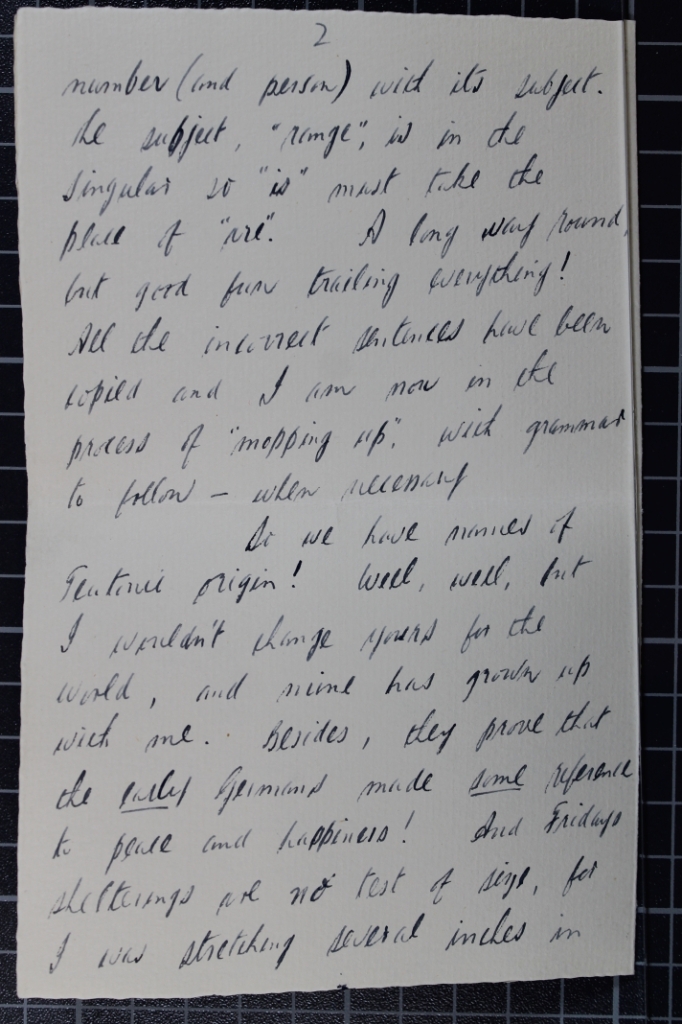 2
number (and person) with its subject.
The subject, "range", is in the
singular so "is" must take the
place of "are". A long way round,
but good fun trailing everything!
All the incorrect sentences have been
copied and I am now in the
process of "mopping up", with grammar
to follow – when necessary
So we have names of
Teutonic origin! Well, well, but
I wouldn't change yours for the
world, and mine has grown up
with me. Besides, they prove that
the early Germans made some reference
to peace and happiness! And Fridays
shelterings are no test of size, for
I was stretching several inches in